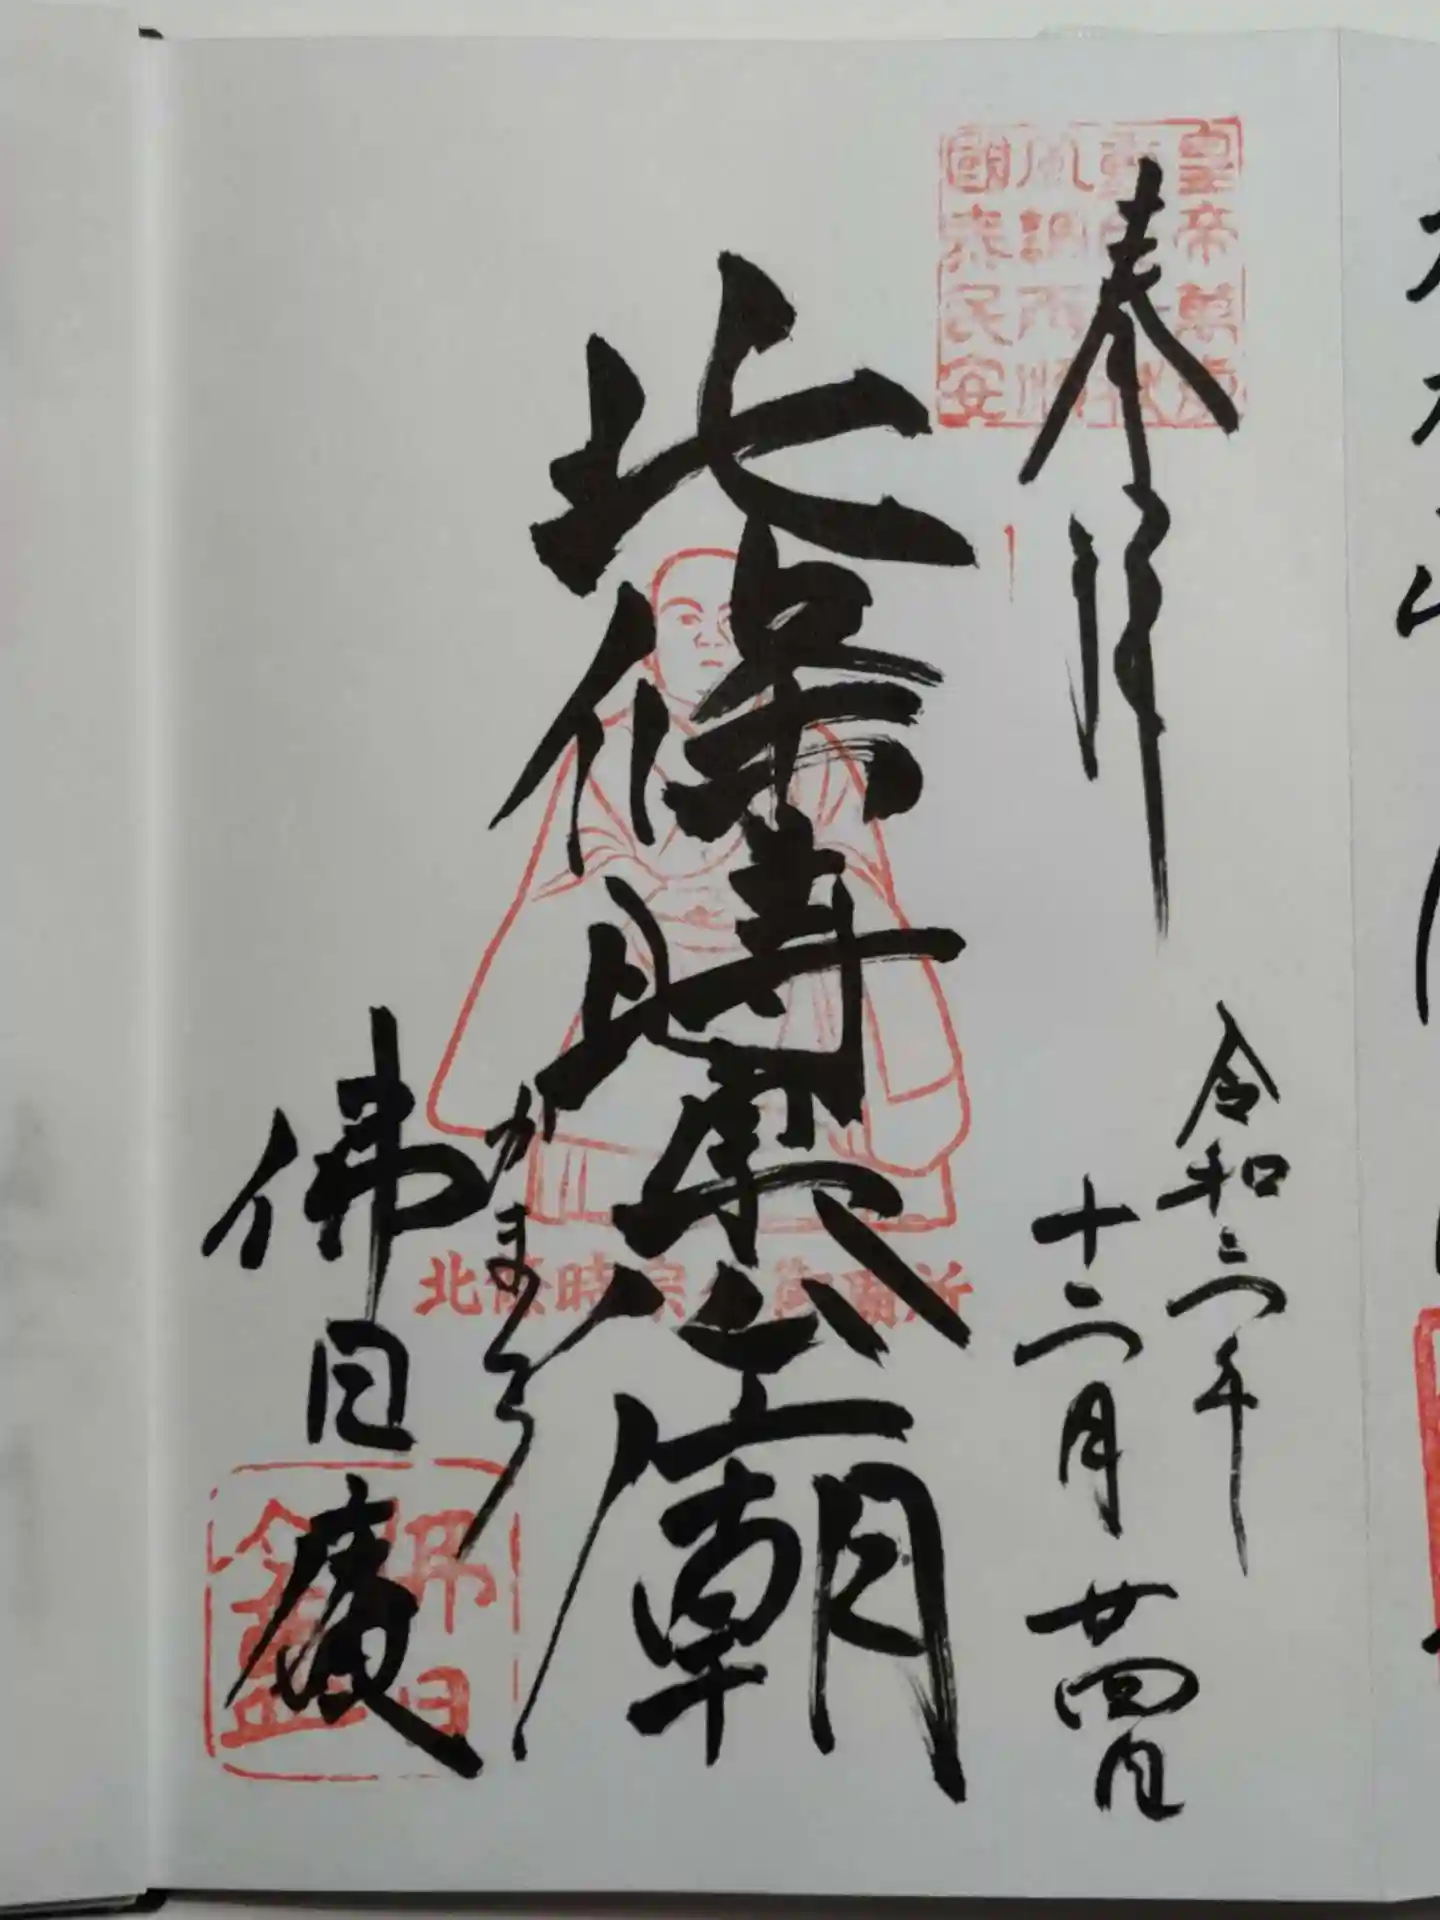 皇帝萬歳
風調雨順
國泰民安
奉拝
令和三年
十二月廿四日
北條時宗公廟
北條時宗公御廟所
かまくら
佛日庵